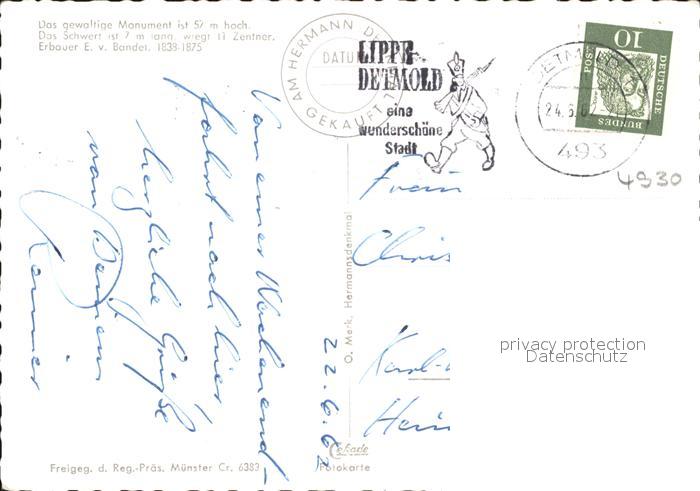 Das gewaltige Monument ist 57 m hoch.
Das Schwert ist 7 m lang, wiegt 11 Zentner.
Erbauer E. v. Bandel. 1838-1875
AM HERMANN
DATUM
GEKAUFT
LIPPE-
DETMOLD
eine
wunderschöne
Stadt
DETMOLD
24.6.62
493
10
DEUTSCHE
BUNDES
POST
4930
Von einer Wochenend-
fahrt nach hier
herzliche Grüße
von
22.6.62
Frau
Chris
Karl-
Hein
O. Merk, Hermannsdenkmal
privacy protection
Datenschutz
Cekade
Fotokarte
Freigeg. d. Reg.-Präs. Münster Cr. 6383